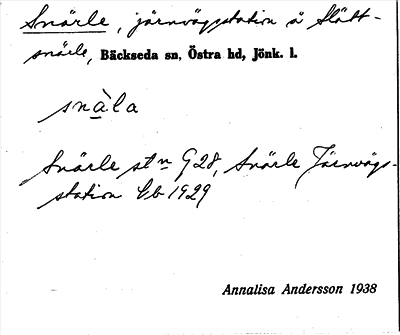 Snärle, järnvägsstation å Slätt-
snärle, Bäckseda sn, Östra hd, Jönk. l.
snàla
Snärle stn G28, Snärle Järnvägs-
station Eb 1929
Annalisa Andersson 1938